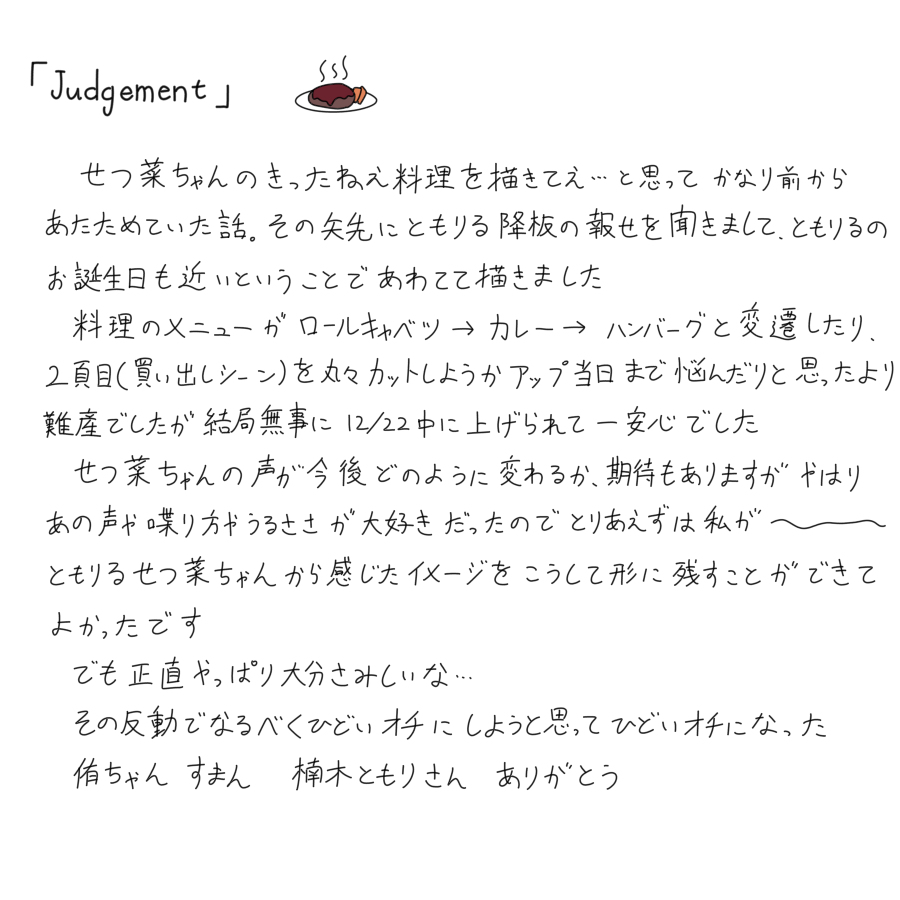 「Judgement」
せつ菜ちゃんのきったねえ料理を描きてえ…と思って かなり前から
あたためていた話。その矢先にともりる降板の報せを聞きまして、ともりるの
お誕生日も近いということであわてて描きました
料理のメニューが ロールキャベツ → カレー → ハンバーグと変遷したり、
2頁目(買い出しシーン)を丸々カットしようかアップ当日まで悩んだりと思ったより
難産でしたが 結局無事に 12/22中に上げられて一安心でした
せつ菜ちゃんの声が今後どのように変わるか、期待もありますが やはり
あの声や喋り方やうるささが大好きだったのでとりあえずは私が〜
ともりるせつ菜ちゃんから感じたイメージをこうして形に残すことができて
よかったです
でも正直やっぱり大分さみしいな…
その反動でなるべくひどいオチにしようと思ってひどいオチになった
侑ちゃん すまん 楠木ともりさん ありがとう